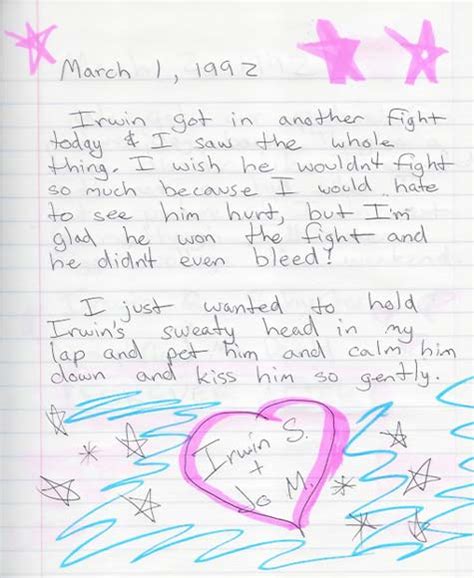 March 1, 1992
Irwin got in another fight
today & I saw the whole
thing. I wish he wouldn't fight
so much because I would hate
to see him hurt, but I'm
glad he won the fight and
he didn't even bleed!
I just wanted to hold
Irwin's sweaty head in my
lap and pet him and calm him
down and kiss him so gently.
Irwin S.
+
Jo M.